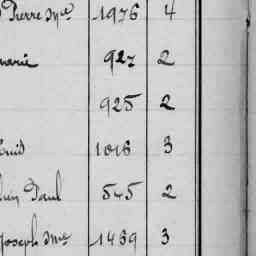 Pierre Me 1976 4
marie 927 2
925 2
1016 3
Paul 545 2
Joseph Me 1469 3